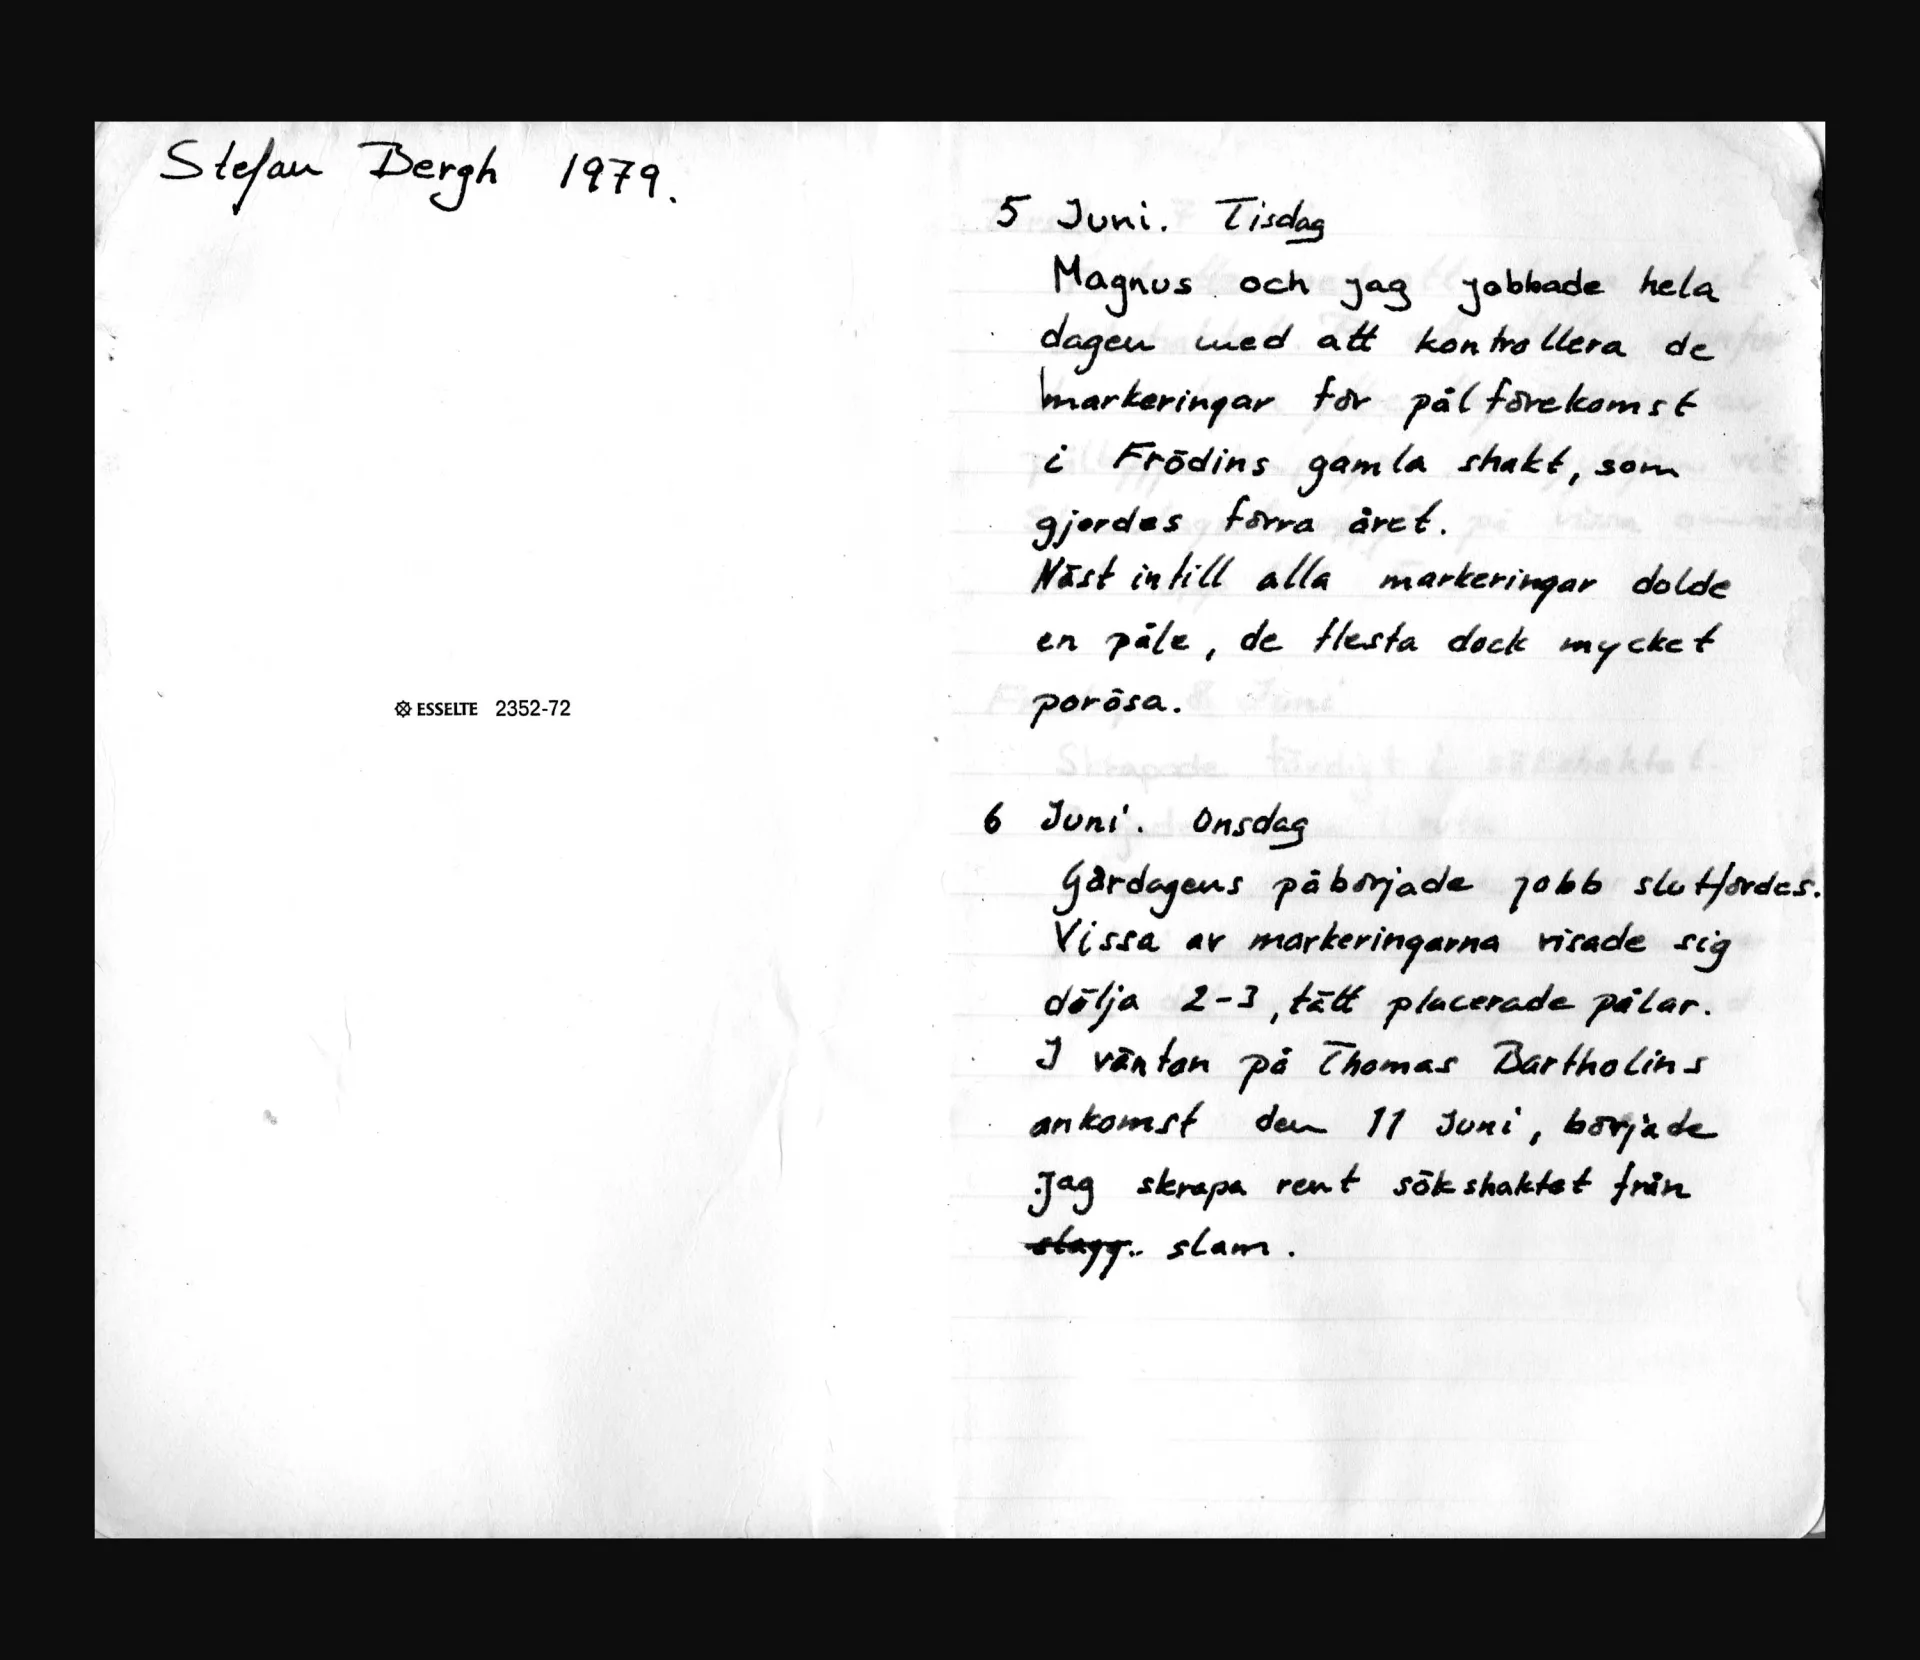 Stefan Bergh 1979.
ESSELTE 2352-72
5 Juni. Tisdag
Magnus och jag jobbade hela
dagen med att kontrollera de
markeringar för pålförekomst
i Frödins gamla shakt, som
gjordes förra året.
Näst intill alla markeringar dolde
en påle, de flesta dock mycket
porösa.
6 Juni. Onsdag
Gårdagens påbörjade jobb slutfördes.
Vissa av markeringarna visade sig
dölja 2-3, tätt placerade pålar.
I väntan på Thomas Bartholins
ankomst den 11 Juni, började
jag skrapa rent sökshaktet från
slagg.. slam.